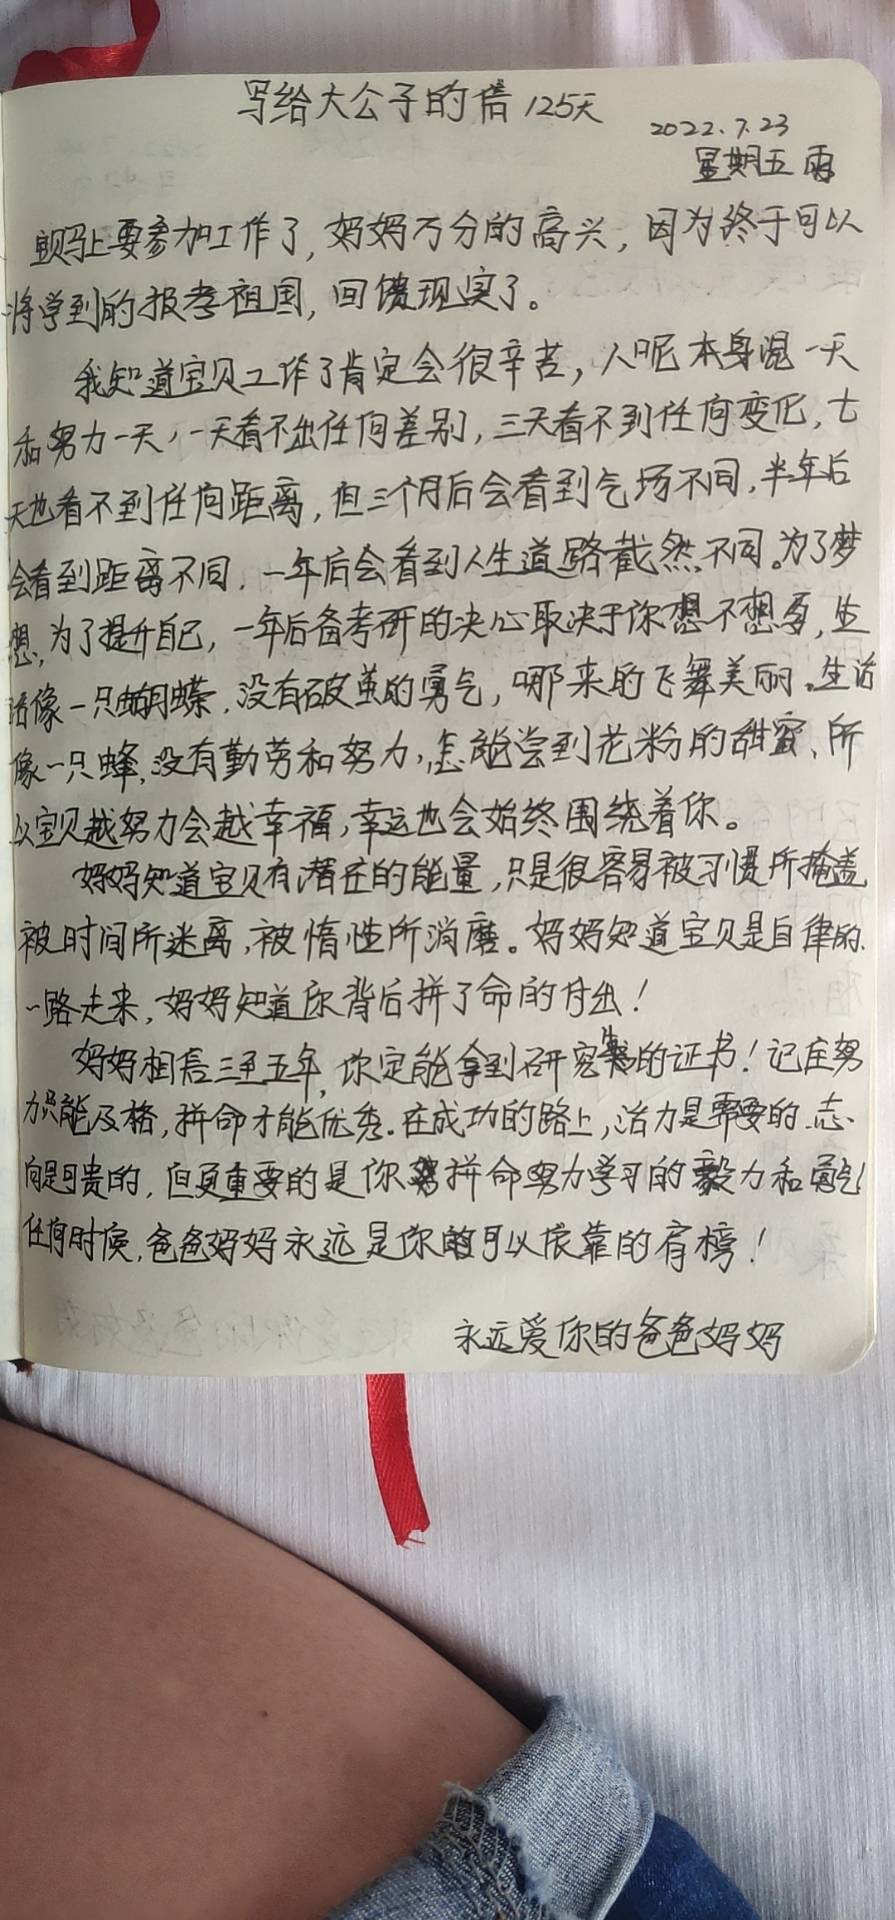 写给大公子的信 125天
2022.7.23
星期五 雨
宝贝马上要参加工作了，妈妈万分的高兴，因为终于可以
将学到的报孝祖国，回馈现实了。
我知道宝贝工作了肯定会很辛苦，人呢本身混一天
和努力一天，一天看不出任何差别，三天看不到任何变化，七
天也看不到任何距离，但三个月后会看到气场不同，半年后
会看到距离不同，一年后会看到人生道路截然不同。为了梦
想，为了提升自己，一年后备考研的决心取决于你想不想要，生
活像一只蝴蝶，没有破茧的勇气，哪来的飞舞美丽。生活
像一只蜂，没有勤劳和努力，怎能尝到花粉的甜蜜、所
以宝贝越努力会越幸福，幸运也会始终围绕着你。
妈妈知道宝贝有潜在的能量，只是很容易被习惯所掩盖
被时间所迷离，被惰性所消磨。妈妈知道宝贝是自律的、
一路走来，妈妈知道你背后拼了命的付出！
妈妈相信三至五年，你定能拿到研究生的证书！记住努
力只能及格，拼命才能优秀。在成功的路上，活力是需要的、志
向是可贵的，但更重要的是你拼命努力学习的毅力和勇气
任何时候，爸爸妈妈永远是你的可以依靠的肩榜！
永远爱你的爸爸妈妈